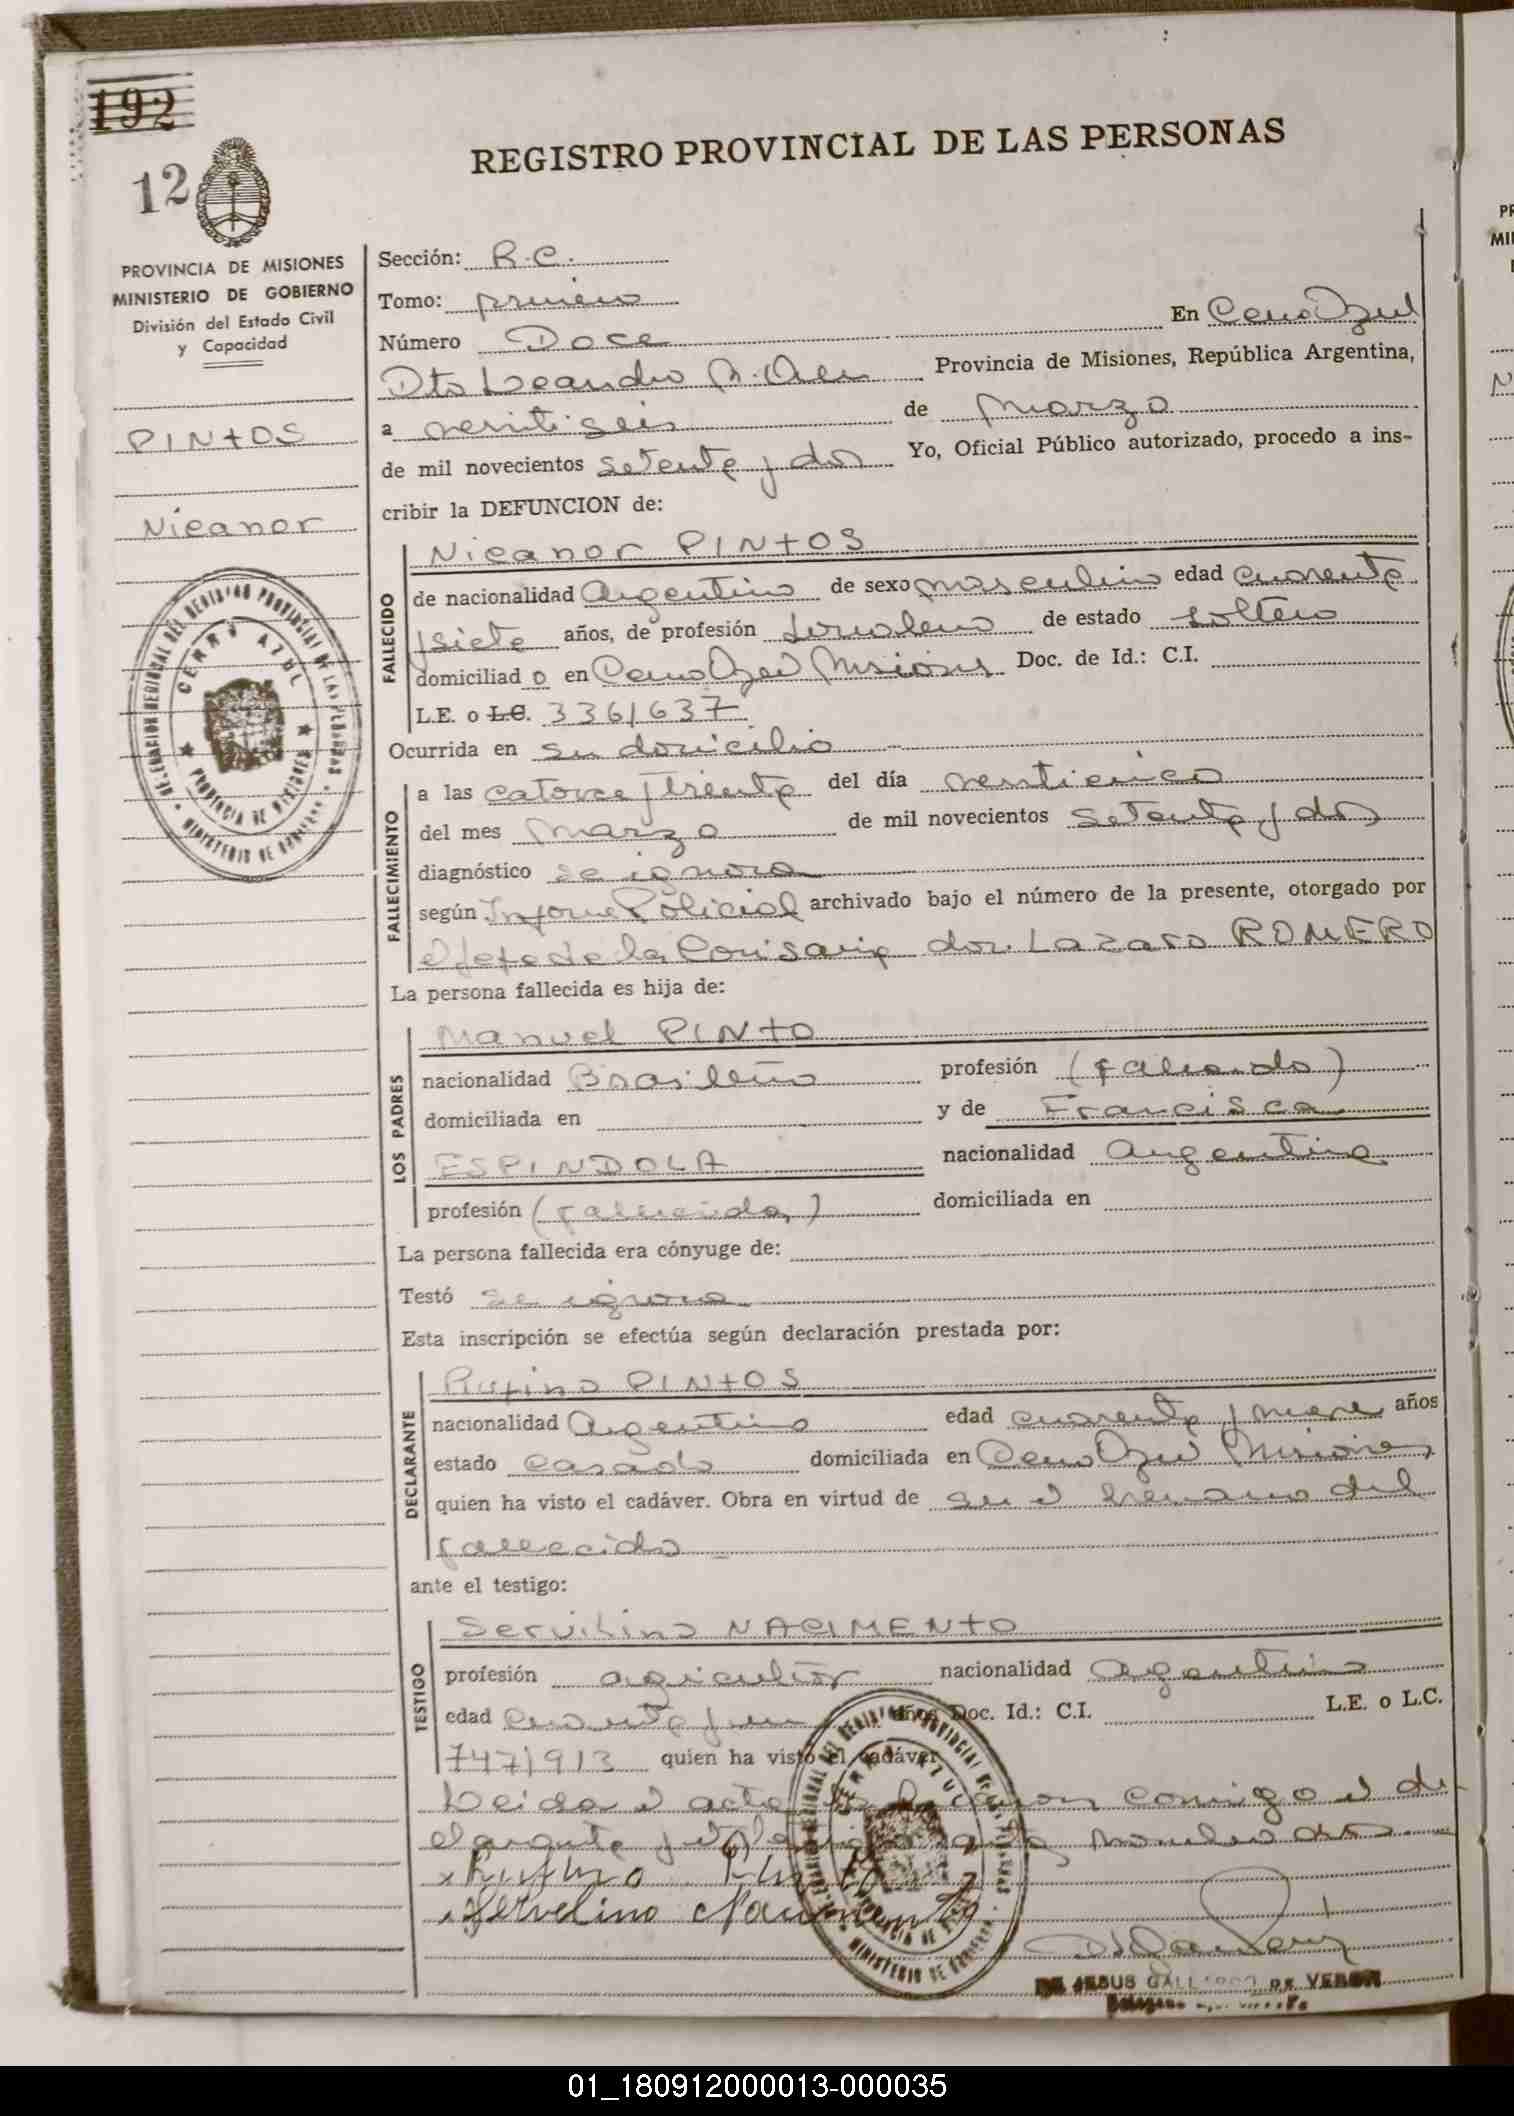 192
12
REGISTRO PROVINCIAL DE LAS PERSONAS
PROVINCIA DE MISIONES
MINISTERIO DE GOBIERNO
División del Estado Civil
y Capacidad
PINTOS
Nicanor
Sección: R.C.
Tomo: primero
Número Doce En Cerro Azul
Dto Leandro N. Alem Provincia de Misiones, República Argentina,
a veintiseis de marzo
de mil novecientos setenta y dos Yo, Oficial Público autorizado, procedo a ins-
cribir la DEFUNCION de:
FALLECIDO
Nicanor PINTOS
de nacionalidad Argentino de sexo masculino edad cuarenta
y siete años, de profesión jornalero de estado soltero
domiciliado en Cerro Azul Misiones Doc. de Id.: C.I.
L.E. o L.C. 3361637
Ocurrida en su domicilio
FALLECIMIENTO
a las catorce y treinta del día veinticinco
del mes marzo de mil novecientos setenta y dos
diagnóstico se ignora
según Informe Policial archivado bajo el número de la presente, otorgado por
el jefe de la Comisaria don Lazaro ROMERO
La persona fallecida es hija de:
LOS PADRES
Manuel PINTO
nacionalidad Brasileño profesión (fallecido)
domiciliada en y de Francisca
ESPINDOLA nacionalidad Argentina
profesión (fallecida) domiciliada en
La persona fallecida era cónyuge de:
Testó se ignora
Esta inscripción se efectúa según declaración prestada por:
DECLARANTE
Rufino PINTOS
nacionalidad Argentino edad cuarenta y nueve años
estado casado domiciliada en Cerro Azul Misiones
quien ha visto el cadáver. Obra en virtud de ser el hermano del
fallecido
ante el testigo:
TESTIGO
Servilino NACIMENTO
profesión agricultor nacionalidad Argentino
edad cuarenta y un años Doc. Id.: C.I. L.E. o L.C.
7471913 quien ha visto el cadáver
Leida el acta la firman conmigo el de-
clarante y el testigo nombrados
Rufino Pintos
Servelino Nacimento
DE JESUS GALLARDO DE VERON
CERRO AZUL
PROVINCIA DE MISIONES
01_180912000013-000035